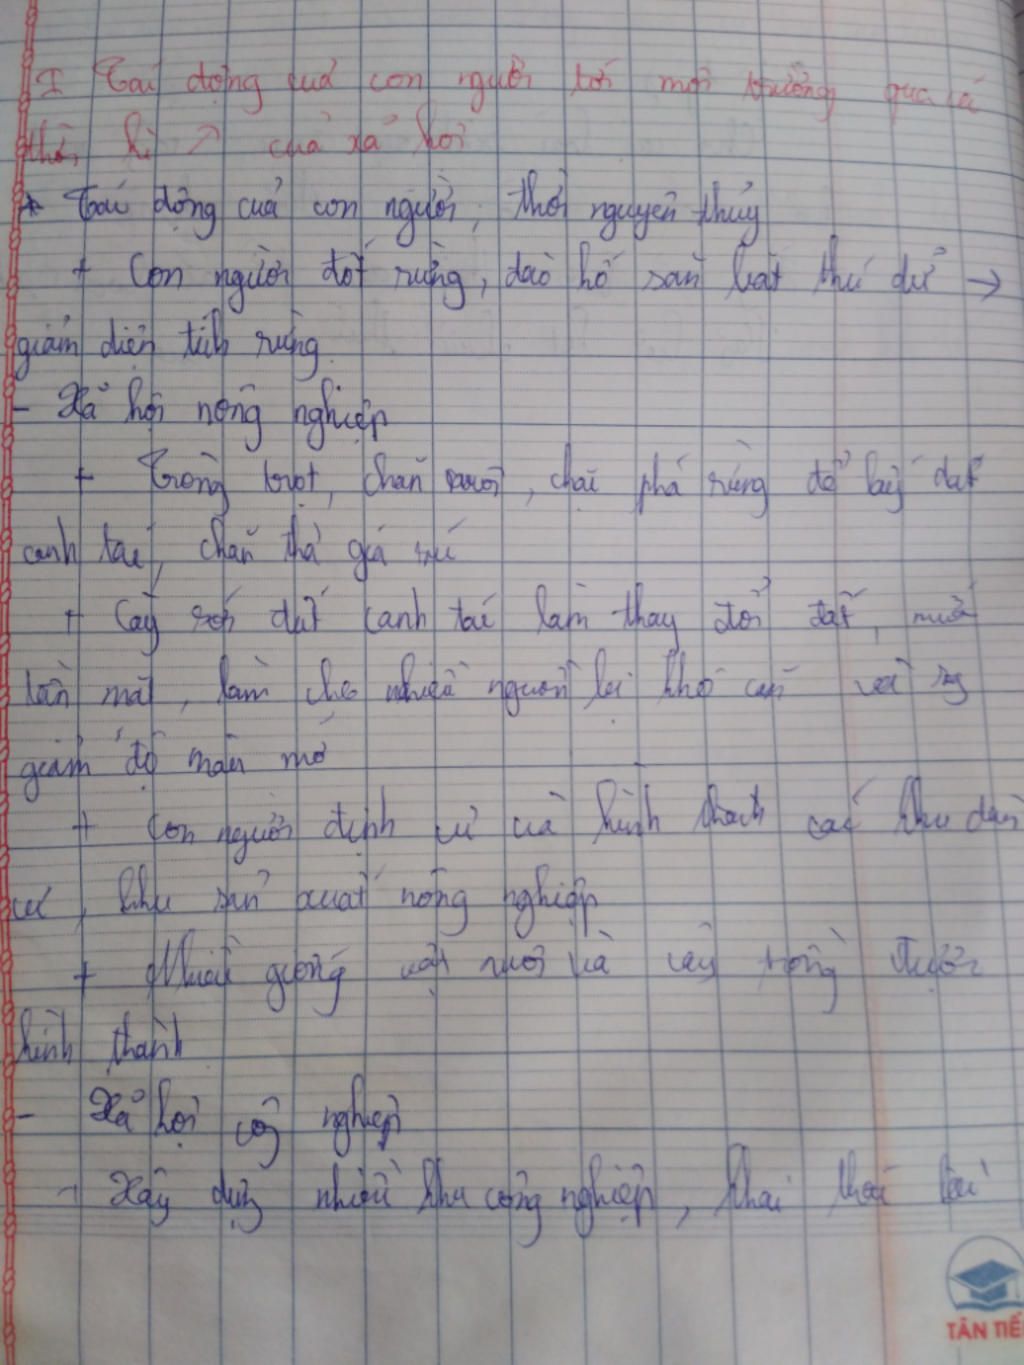 I Tác động của con người tới môi trường qua cá
thời kì ↗ của xã hội
* Tác động của con người, thời nguyên thủy
+ Con người đốt rừng, đào hố săn bắt thú dữ →
giảm diện tích rừng
- Xã hội nông nghiệp
+ Trồng trọt, chăn nuôi, chặt phá rừng để lấy đất
canh tác, chăn thả gia súc
+ Cày xới đất canh tác làm thay đổi đất, nước
tầng mặt, làm cho nhiều nguồn lại khô cằn và
giảm độ màu mỡ
+ Con người định cư và hình thành các khu dân
cư, khu sản xuất nông nghiệp
+ Nhiều giống vật nuôi và cây trồng được
hình thành
- Xã hội công nghiệp
- Xây dựng nhiều khu công nghiệp, khai thác tài
TÂN TIẾ